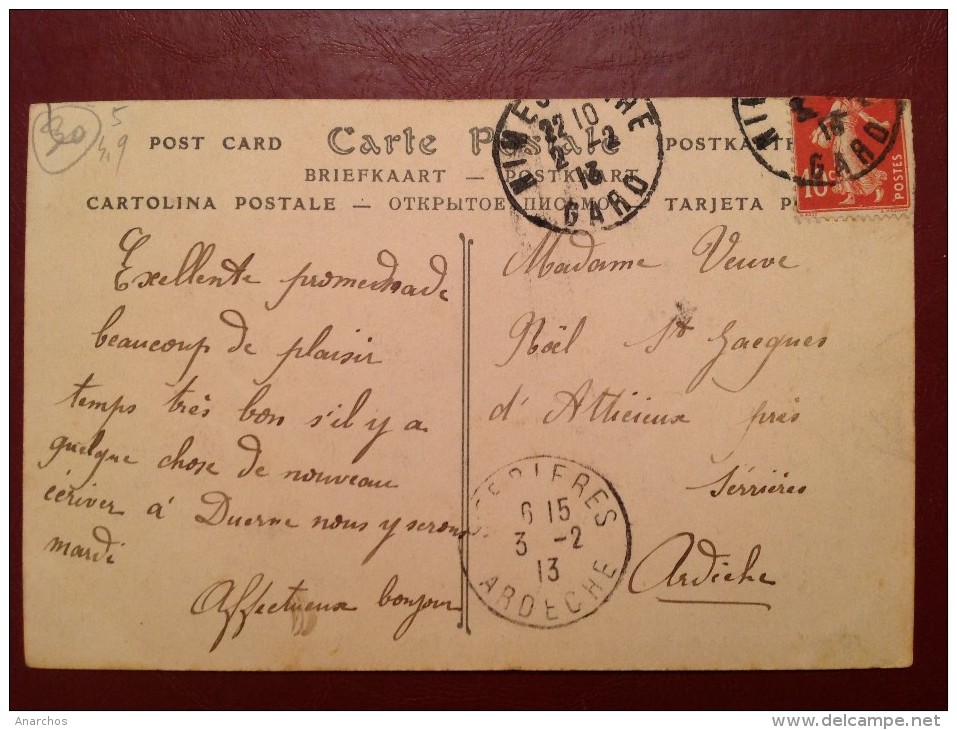 30
5
4,9
POST CARD Carte Postale POSTKARTE
BRIEFKAART — POSTKARRT
CARTOLINA POSTALE — ОТКРЫТОЕ ПИСЬМО — TARJETA PO
NIMES GARE
22 10
2 -2
13
GARD
NIM
13
GARD
10c
POSTES
Exellente promednade
beaucoup de plaisir
temps très bon s'il y a
quelque chose de nouveau
écriver à Duerne nous y serons
mardi
Affectueux bonjour
Madame Veuve
Noël St Jacques
d'Atticieux près
Sérrières
Ardèche
SERRIERES
6 15
3 -2
13
ARDECHE
Anarchos
www.delcampe.net